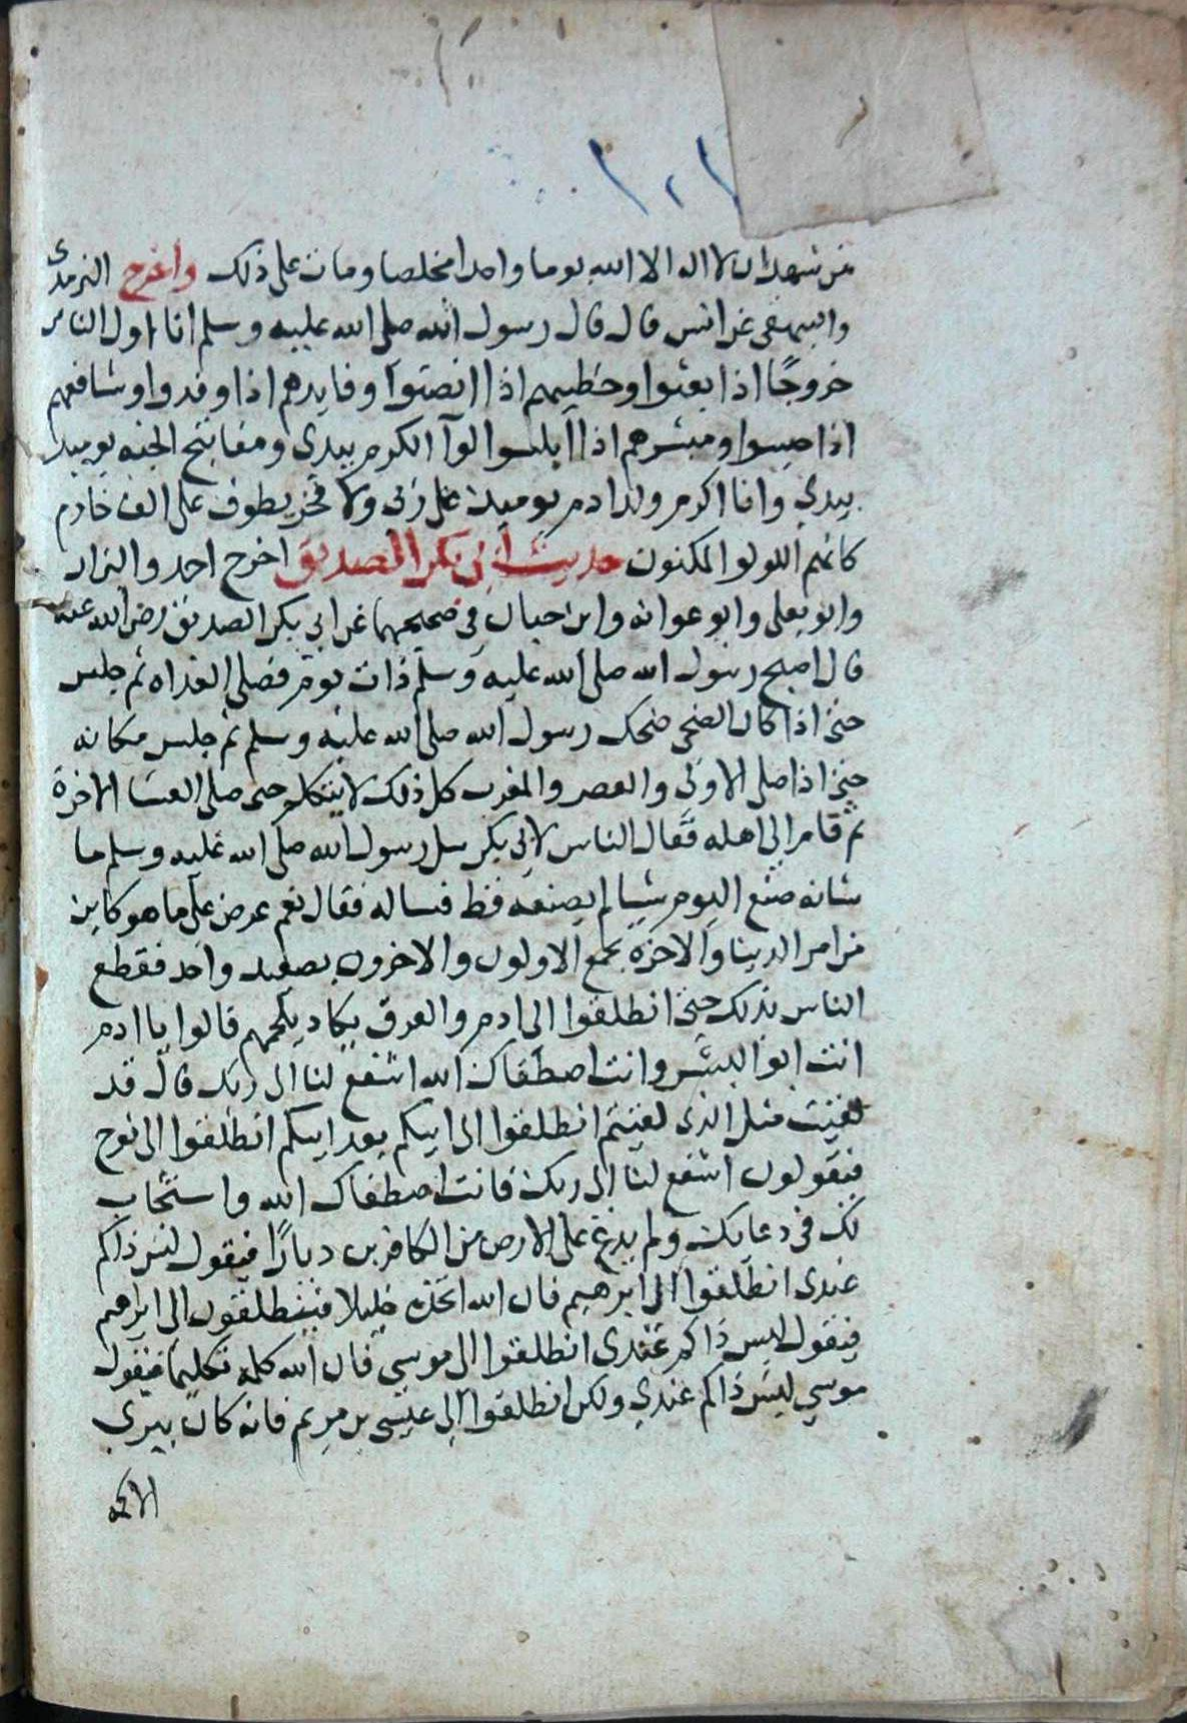 ١٠١
من شهد ان لا اله الا الله يوما واحدا مخلصا ومات على ذلك واخرج الترمذى
والبيهقى عن انس قال قال رسول الله صلى الله عليه وسلم انا اول الناس
خروجًا اذا بعثوا وخطيبهم اذا انصتوا وقايدهم اذا وفدوا وشافعهم
اذا حبسوا ومبشرهم اذا ابلسوا لوآ الكرم بيدى ومفاتيح الجنه يوميذ
بيدي وانا اكرم ولد ادم يوميذ على ربى ولا فخر يطوف على الف خادم
كانهم اللولو المكنون حديث أبى بكر الصديق اخرج احمد والبزار
وابو يعلى وابو عوانه وابن حبان في صحيحهما عن ابي بكر الصديق رضى الله عنه
قال اصبح رسول الله صلى الله عليه وسلم ذات يوم فصلى الغداه ثم جلس
حتى اذا كان الضحى ضحك رسول الله صلى الله عليه وسلم ثم جلس مكانه
حتى اذا صلى الاولى والعصر والمغرب كل ذلك لا يتكلم حتى صلى العشا الاخرة
ثم قام الى اهله فقال الناس لابى بكر سل رسول الله صلى الله عليه وسلم ما
شانه صنع اليوم شيا لم يصنعه قط فساله فقال نعم عرض على ما هو كاين
من امر الدينا والاخرة بجمع الاولون والاخرون بصعيد واحد فقطع
الناس بذلك حتى انطلقوا الى ادم والعرق يكاد يلجمهم قالوا يا ادم
انت ابوا البشر وانت اصطفاك الله اشفع لنا الى ربك قال قد
لقيت مثل الذى لقيتم انطلقوا الى ابيكم بعد ابيكم انطلقوا الى نوح
فيقولون اشفع لنا الى ربك فانت اصطفاك الله واستجاب
لك فى دعايك ولم يدع على الارض من الكافرين ديارًا فيقول ليس ذاكم
عندى انطلقوا الى ابرهيم فان الله اتخذه خليلا فينطلقون الى ابرهيم
فيقول ليس ذاكم عندى انطلقوا الى موسي فان الله كلمه تكليما فيقول
موسي ليس ذاكم عندي ولكن انطلقوا الى عيسى بن مريم فانه كان يبرى
الاكمه